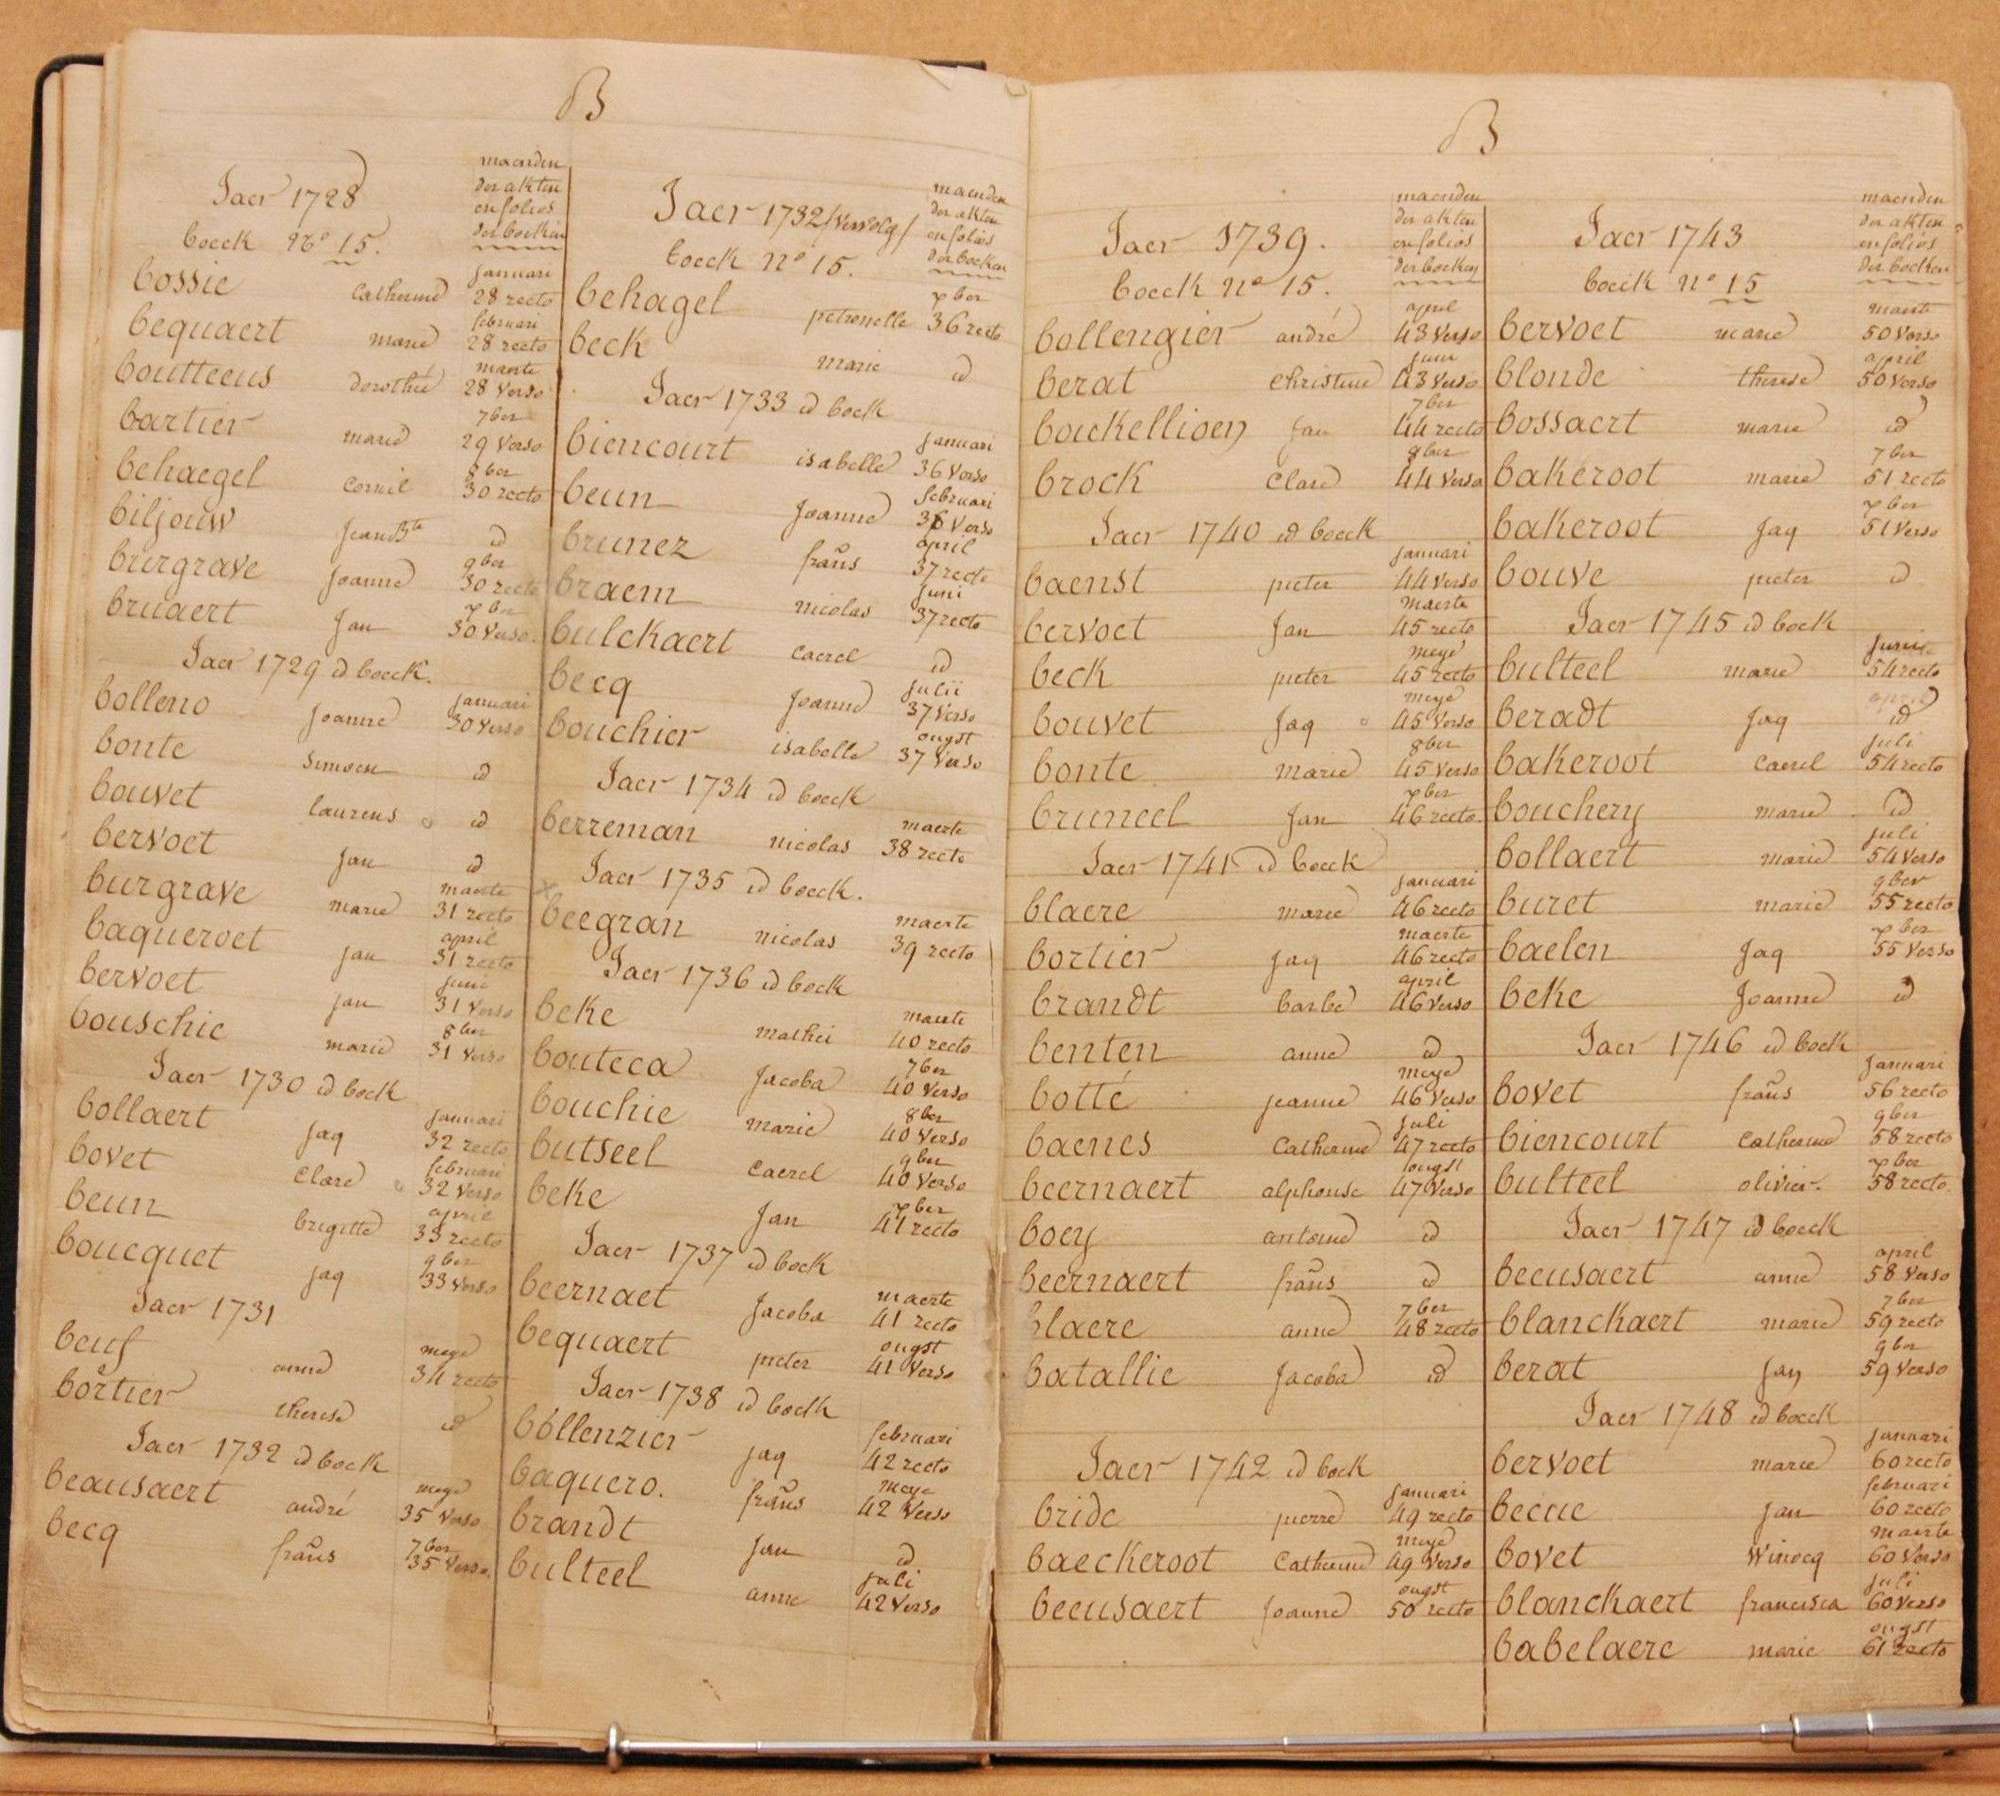 B
Jaer 1728
boeck No 15.
maenden
der akten
en folios
der boeken
bossie catherine januari 28 recto
bequaert marie februari 28 recto
boutteeus dorothée maerte 28 verso
bartier marie 7ber 29 verso
behaegel cornil 8ber 30 recto
biljouw jean Bte id
burgrave joanne 9ber 30 recto
bruaert jan xber 30 verso.
Jaer 1729 id boeck.
bolleno joanne januari 30 verso
bonte simoen id
bouvet laurens id
bervoet jan id
burgrave marie maerte 31 recto
baqueroet jan april 31 recto
bervoet jan june 31 verso
bouschie marie 8ber 31 verso
Jaer 1730 id boek
bollaert jaq januari 32 recto
bovet clare februari 32 verso
beun brigitte april 33 recto
boucquet jaq 9ber 33 verso
Jaer 1731
beuf anne meye 34 recto
bortier therese id
Jaer 1732 id boek
beausaert andré meye 35 verso
becq frans 7ber 35 verso.
Jaer 1732 /vervolg/
boeck No 15.
maenden
der akten
en folios
der boeken
behagel petronelle xber 36 recto
beck marie id
Jaer 1733 id boek
biencourt isabelle januari 36 verso
beun joanne februari 36 verso
brunez frans april 37 recto
braem nicolas juni 37 recto
bulckaert caerel id
becq joanne julii 37 verso
bouchier isabelle ougst 37 verso
Jaer 1734 id boeck
berreman nicolas maerte 38 recto
Jaer 1735 id boeck.
beegran nicolas maerte 39 recto
Jaer 1736 id boek
beke mathei maerte 40 recto
bouteca jacoba 7ber 40 verso
bouchie marie 8ber 40 verso
butseel caerel 9ber 40 verso
beke jan xber 41 recto
Jaer 1737 id boek
beernaet jacoba maerte 41 recto
bequaert pieter ougst 41 verso
Jaer 1738 id boeck
bollenzier jaq februari 42 recto
baquero. frans meye 42 verso
brandt jan id
bulteel anne juli 42 verso
B
Jaer 1739.
boeck No 15.
maenden
der akten
en folios
der boeken
bollengier andré april 43 verso
berat christine juni 43 verso
bouckellioen jan 7ber 44 recto
brock clare 8ber 44 verso
Jaer 1740 id boeck
baenst pieter januari 44 verso
bervoet jan maerte 45 recto
beck pieter meye 45 recto
bouvet jaq meye 45 verso
bonte marie 8ber 45 verso
bruneel jan xber 46 recto.
Jaer 1741 id boeck
blaere marie januari 46 recto
bortier jaq maerte 46 recto
brandt barbe april 46 verso
benten anne id
botté jeanne meye 46 verso
baenes catherine juli 47 recto
beernaert alphonse ougst 47 verso
boey antoine id
beernaert frans id
blaere anne 7ber 48 recto
batallie jacoba id
Jaer 1742 id boek
bride pierre januari 49 recto
baeckeroot catherine meye 49 verso
beeusaert joanne ougst 50 recto
Jaer 1743
boeck No 15
maenden
der akten
en folios
der boeken
bervoet marie maerte 50 verso
blonde therese april 50 verso
bossaert marie id
bakeroot marie 7ber 51 recto
bakeroot jaq xber 51 verso
bouve pieter id
Jaer 1745 id boek
bulteel marie juni 54 recto
beradt jaq april id
bakeroot caerel juli 54 recto
bouchery marie id
bollaert marie juli 54 verso
buret marie 9ber 55 recto
baelen jaq xber 55 verso
beke joanne id
Jaer 1746 id boek
bovet frans januari 56 recto
biencourt catherine 9ber 58 recto
bulteel olivier. xber 58 recto
Jaer 1747 id boeck
beeusaert anne april 58 verso
blanckaert marie 7ber 59 recto
berat jan 9ber 59 verso
Jaer 1748 id boeck
bervoet marie januari 60 recto
becue jan februari 60 recto
bovet winocq maerte 60 verso
blanckaert francisca juli 60 verso
babelaere marie ougst 61 recto